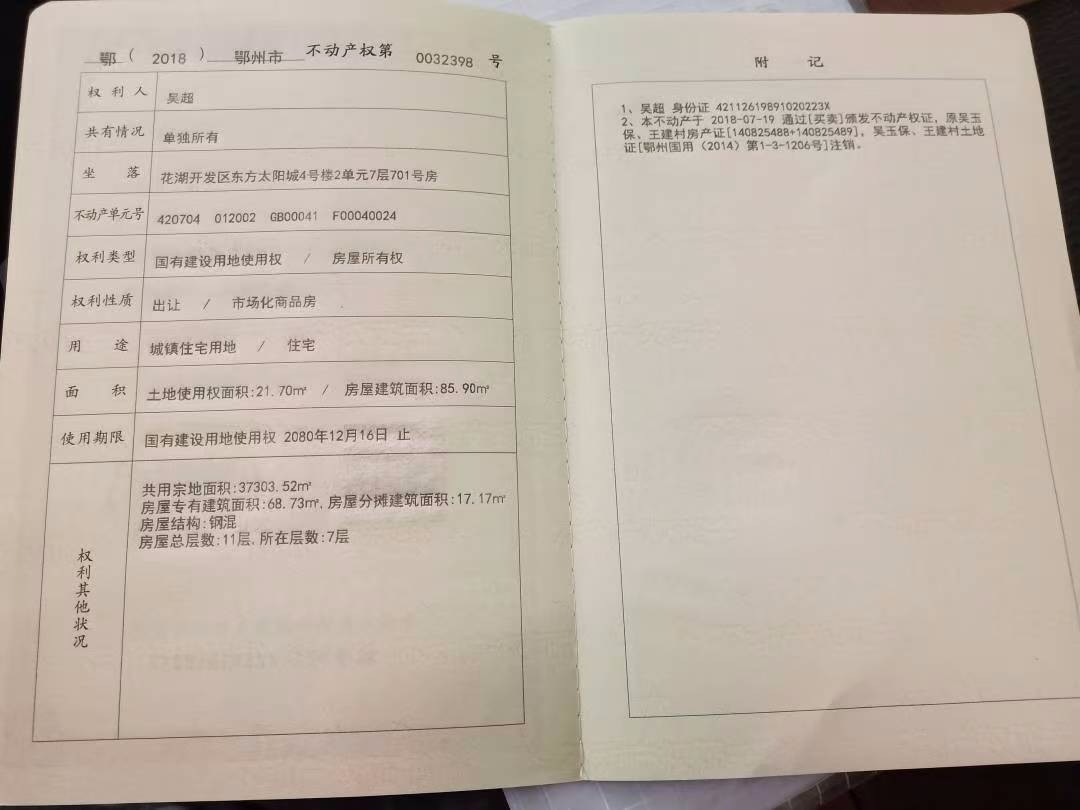 鄂（2018）鄂州市不动产权第0032398号
权利人 吴超
共有情况 单独所有
坐落 花湖开发区东方太阳城4号楼2单元7层701号房
不动产单元号 420704 012002 GB00041 F00040024
权利类型 国有建设用地使用权 / 房屋所有权
权利性质 出让 / 市场化商品房
用途 城镇住宅用地 / 住宅
面积 土地使用权面积:21.70㎡ / 房屋建筑面积:85.90㎡
使用期限 国有建设用地使用权 2080年12月16日 止
权利其他状况
共用宗地面积:37303.52㎡
房屋专有建筑面积:68.73㎡,房屋分摊建筑面积:17.17㎡
房屋结构:钢混
房屋总层数:11层,所在层数:7层
附记
1、吴超 身份证 42112619891020223X
2、本不动产于 2018-07-19 通过[买卖]颁发不动产权证，原吴玉
保、王建村房产证[140825488+140825489]，吴玉保、王建村土地
证[鄂州国用（2014）第1-3-1206号]注销。